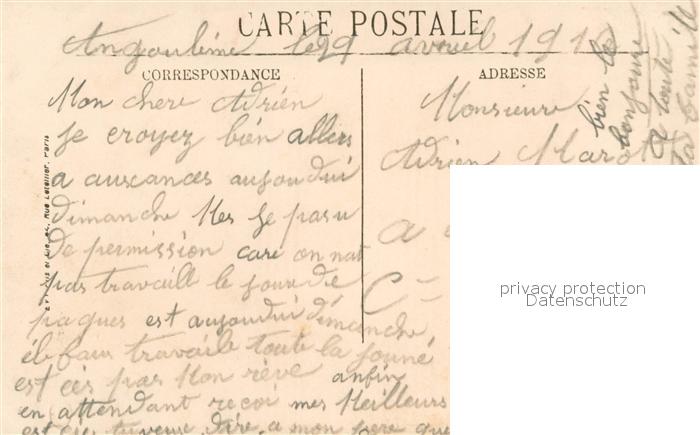 CARTE POSTALE
Angoulême le 29 avril 191
CORRESPONDANCE
Mon chere Adrien
Je croyez bien allers
a auscances aujoudui
dimanche Mes Je pas u
de permission care on nat
pas travaillt le jour de
paques est aujoudui dimanche
il faus travaile toute la journé
est ces pas Mon rève anfin
en attendant reçoi mes Meilleurs
dire a mon pere que
ADRESSE
Monsieure
Adrien Maro
a
C
bien le
bonjoure
a toute
la famill
privacy protection
Datenschutz